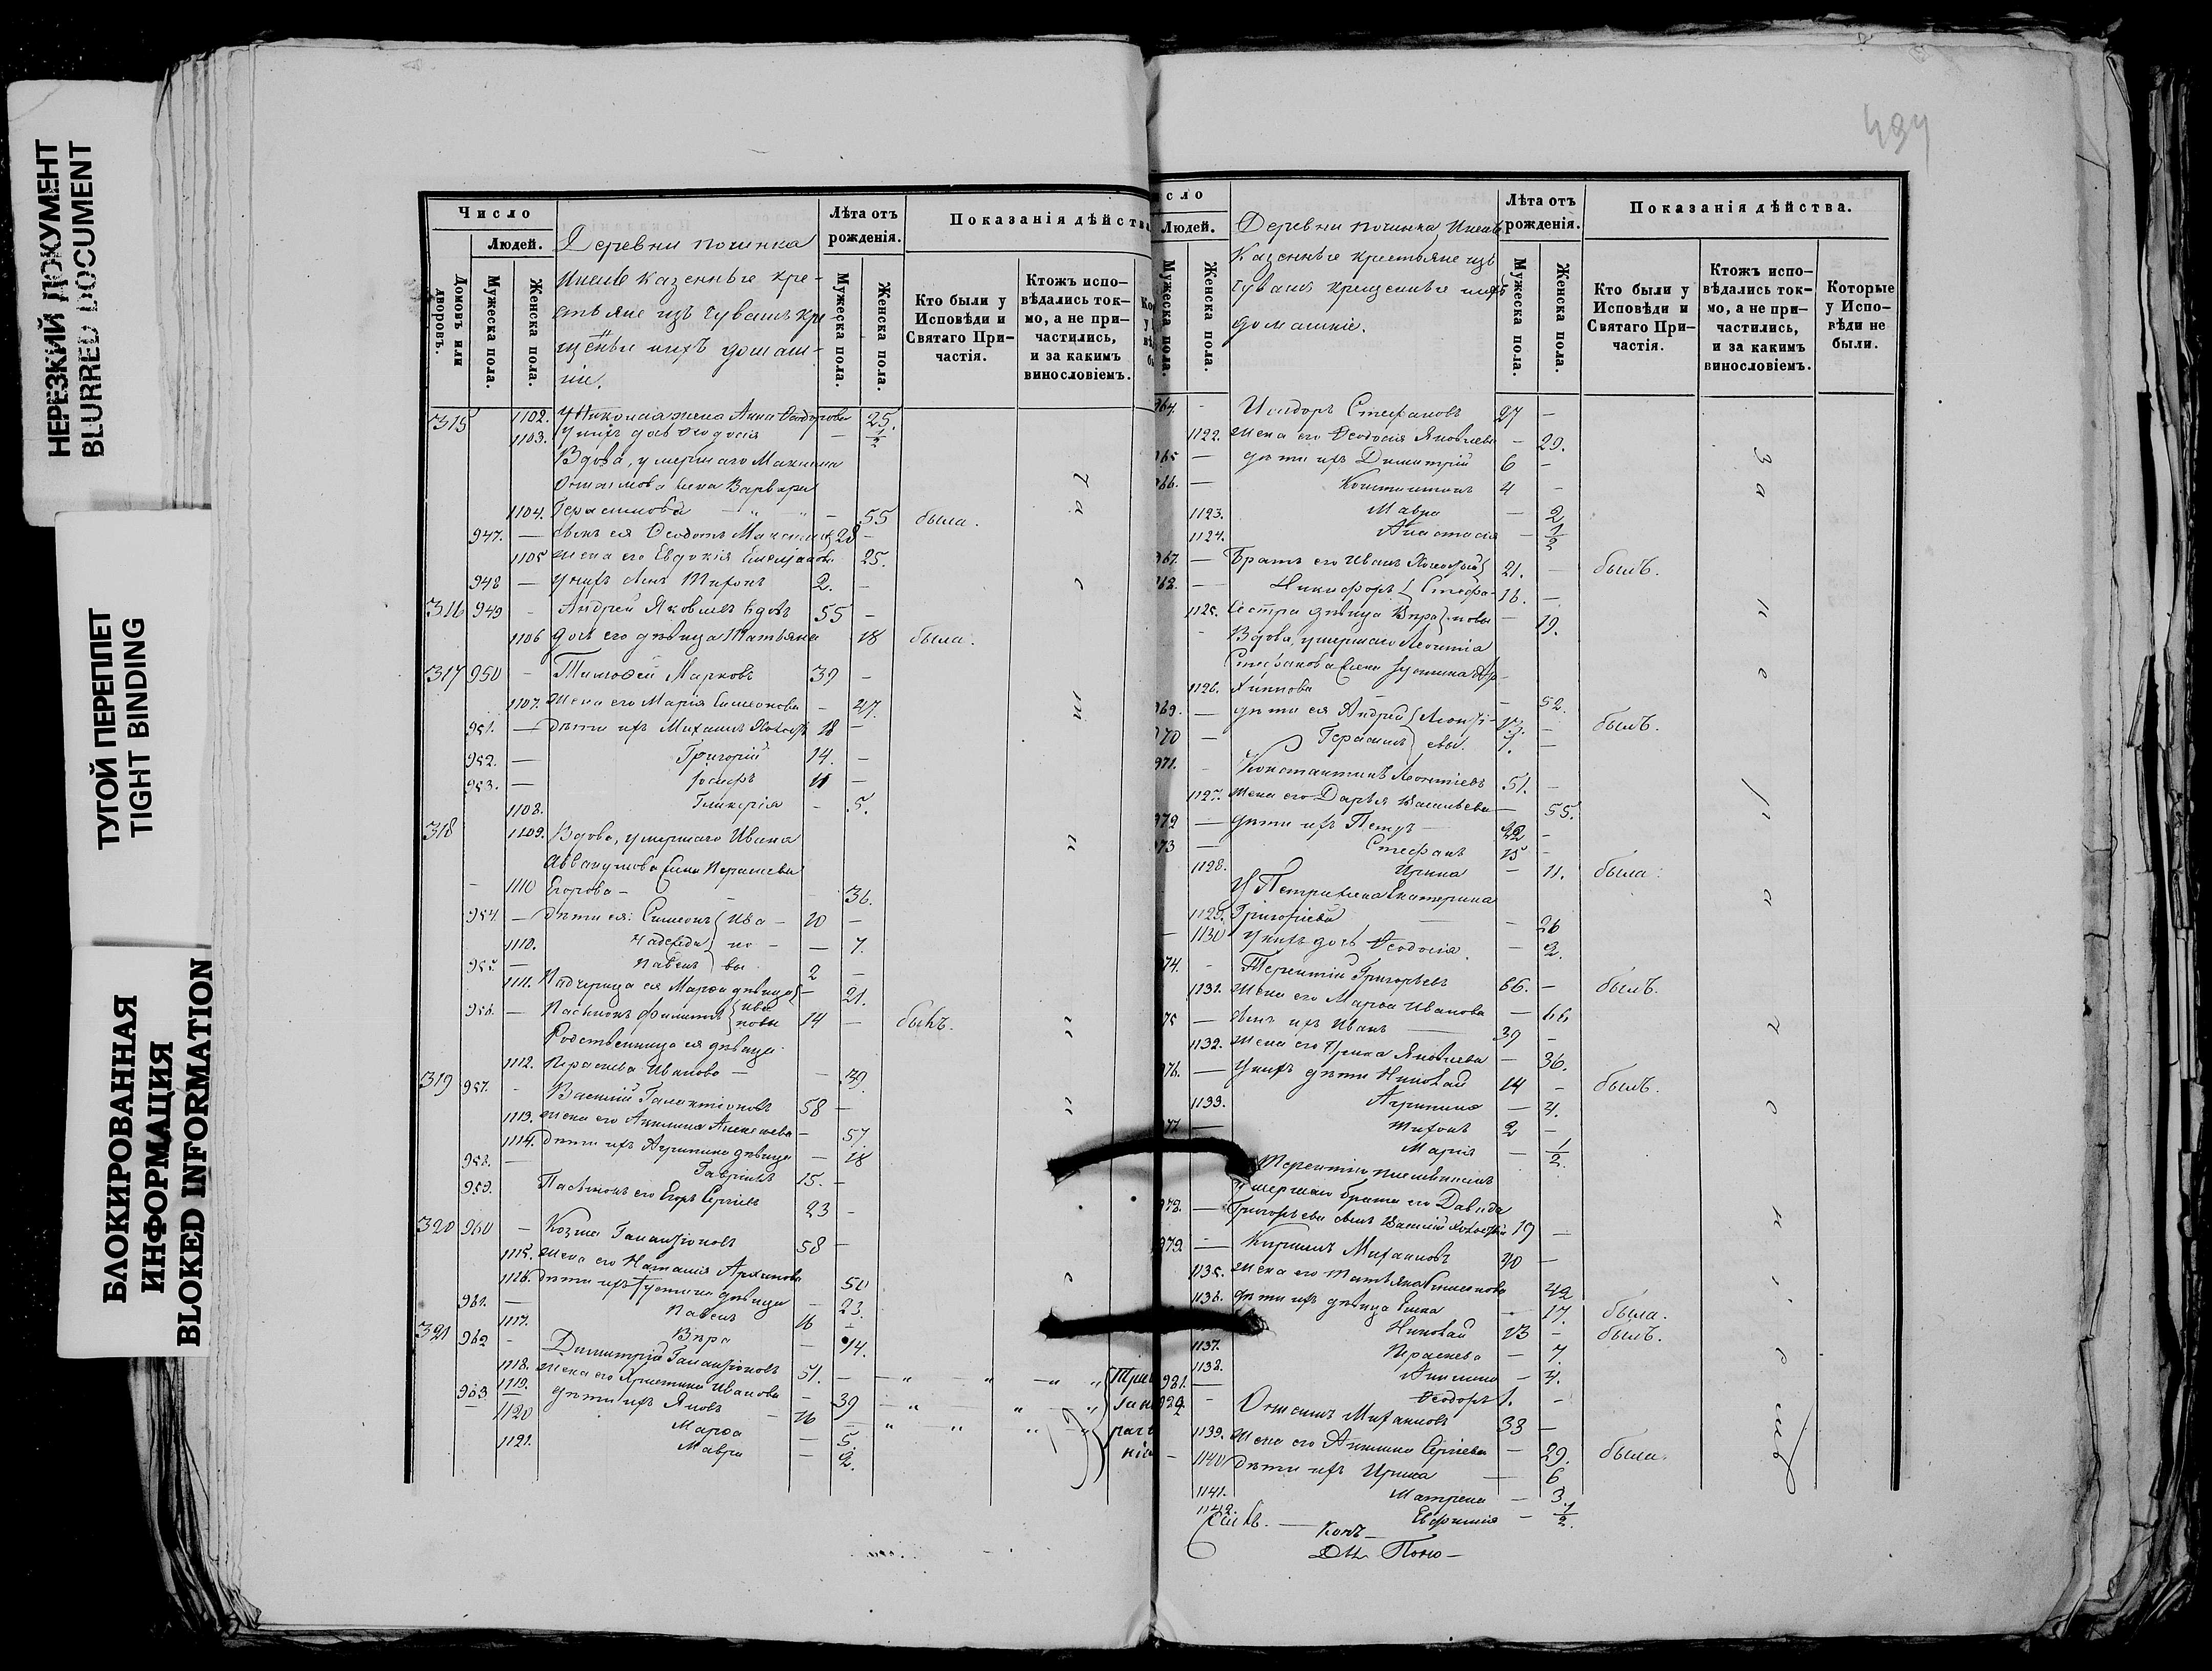 НЕРЕЗКИЙ ДОКУМЕНТ
BLURRED DOCUMENT
ТУГОЙ ПЕРЕПЛЕТ
TIGHT BINDING
БЛОКИРОВАННАЯ
ИНФОРМАЦИЯ
BLOKED INFORMATION
Число
Людей.
Домовъ или дворовъ.
Мужеска пола.
Женска пола.
Деревни починка
казенные кре-
стьяне изъ Чувашъ кре-
щеные ихъ домаш-
ніе.
Лѣта отъ рожденія.
Мужеска пола.
Женска пола.
Показанія дѣйства
Кто были у Исповѣди и Святаго При-частія.
Ктожъ испо-вѣдались ток-мо, а не при-частились, и за какимъ винословіемъ.
315 1102. У Николая жена Анна Ѳеодорова 25.
1103. У нихъ дочь Ѳеодосія — 1/2
Вдова, умершаго Максима
жена Варвара
1104. Герасимова — 55 была.
947. — сынъ ея Ѳеодотъ 28 —
1105 жена его Евдокія 25.
948 — у нихъ сынъ Тихонъ 2. —
316 949 - Андрей Яковлевъ вдовъ 55 —
1106 дочь его дѣвица Татьяна 18 была.
317 950 - Тимоѳей Марковъ 39 —
1107. жена его Марія Симеонова — 47.
951. — дѣти ихъ Михаилъ 18 —
952. — Григорій 14. —
953. — Іосифъ 11 —
1108. Гликерія - 5.
318 1109. Вдова, умершаго Ивана
Аввакумова жена
1110 Егорова — 36.
954. — дѣти ея: Симеонъ Ива- 20 —
1110. Надежда но- — 7.
955. — Павелъ вы 2 —
1111. Падчерица ея Марѳа дѣвица — 21.
956. — Пасынокъ Филиппъ Ива новы 14 — былъ.
Родственница ея дѣвица
1112. Иванова — — 39.
319 957. - Василій Галактіоновъ 58 —
1113. жена его Акилина Алексѣева — 57.
1114. дѣти ихъ Агрипина дѣвица — 18
958. — Гавріилъ 15. —
959. Пасынокъ его Егоръ Сергѣевъ 23 —
320 960 — Козма Галактіоновъ 58 —
1115. жена его Наталія Архипова 50
1116. дѣти ихъ Іустина дѣвица — 23.
961. — Павелъ 16 —
1117. Вѣра — 14.
321 962 - Димитрій Галактіоновъ 51. —
1718. жена его Христина Иванова — 39
963 1719. дѣти ихъ Яковъ 16 —
1120 Марѳа — 5.
1121. Мавра — 2.
494
Людей.
Мужеска пола.
Женска пола.
Деревни починка
Казенные крестьяне изъ
Чувашъ крещеные ихъ
домашніе.
Лѣта отъ рожденія.
Мужеска пола.
Женска пола.
Показанія дѣйства.
Кто были у Исповѣди и Святаго При-частія.
Ктожъ испо-вѣдались ток-мо, а не при-частились, и за какимъ винословіемъ.
Которые у Испо-вѣди не были.
964. - Исидоръ Стефановъ 27 —
1122. жена его Ѳеодосія Яковлева — 29.
965 — дѣти ихъ Димитрій 6 —
966. — Константинъ 4 —
1123. Мавра — 2
1124. Анастасія — 1/2
967. — Братъ его Иванъ Холостый 21. — былъ.
968. — Никифоръ Стефа- 18. —
1125. Сестра дѣвица Вѣра новы — 19.
Вдова, умершаго Леонтія
Стефанова жена Іустина
1126. — 52.
969. — дѣти ея Андрей Леонті- былъ.
970 — Герасимъ евы. 7. —
971. - Константинъ Леонтіевъ 51. —
1127. жена его Дарья Васильева — 55.
972 — дѣти ихъ Петръ 22 —
973 — Стефанъ 15 —
1128. Ирина — 11. была.
У Петра жена Екатерина
1129. Григорьева — 26
1130 у нихъ дочь Ѳеодосія — 2.
974. - Терентій Григорьевъ 66. — былъ.
1131. жена его Марѳа Иванова — 66
975 — сынъ ихъ Иванъ 39 —
1132. жена его Ирина Яковлева — 36.
976. — у нихъ дѣти Николай 14 — былъ.
1133. Агрипина — 4.
977 — Тихонъ 2 —
Марія — 1/2.
Терентія племянникъ
умершаго брата его Давида
978. — Григорьева сынъ Василій 19 —
979. — Кириллъ Михаиловъ 40 —
1135. жена его Татьяна Симеонова 42
1136. дѣти ихъ дѣвица Елена — 17. была.
Николай 13 — былъ.
1137. — 7.
1138. Акилина — 4.
981. — Ѳеодоръ 1. —
982. - Михаиловъ 33 —
1139. жена его Акилина Сергѣева — 29. была.
1140 дѣти ихъ Ирина — 6
1141. Матрена — 3.
1142. Евфимія — 1/2.